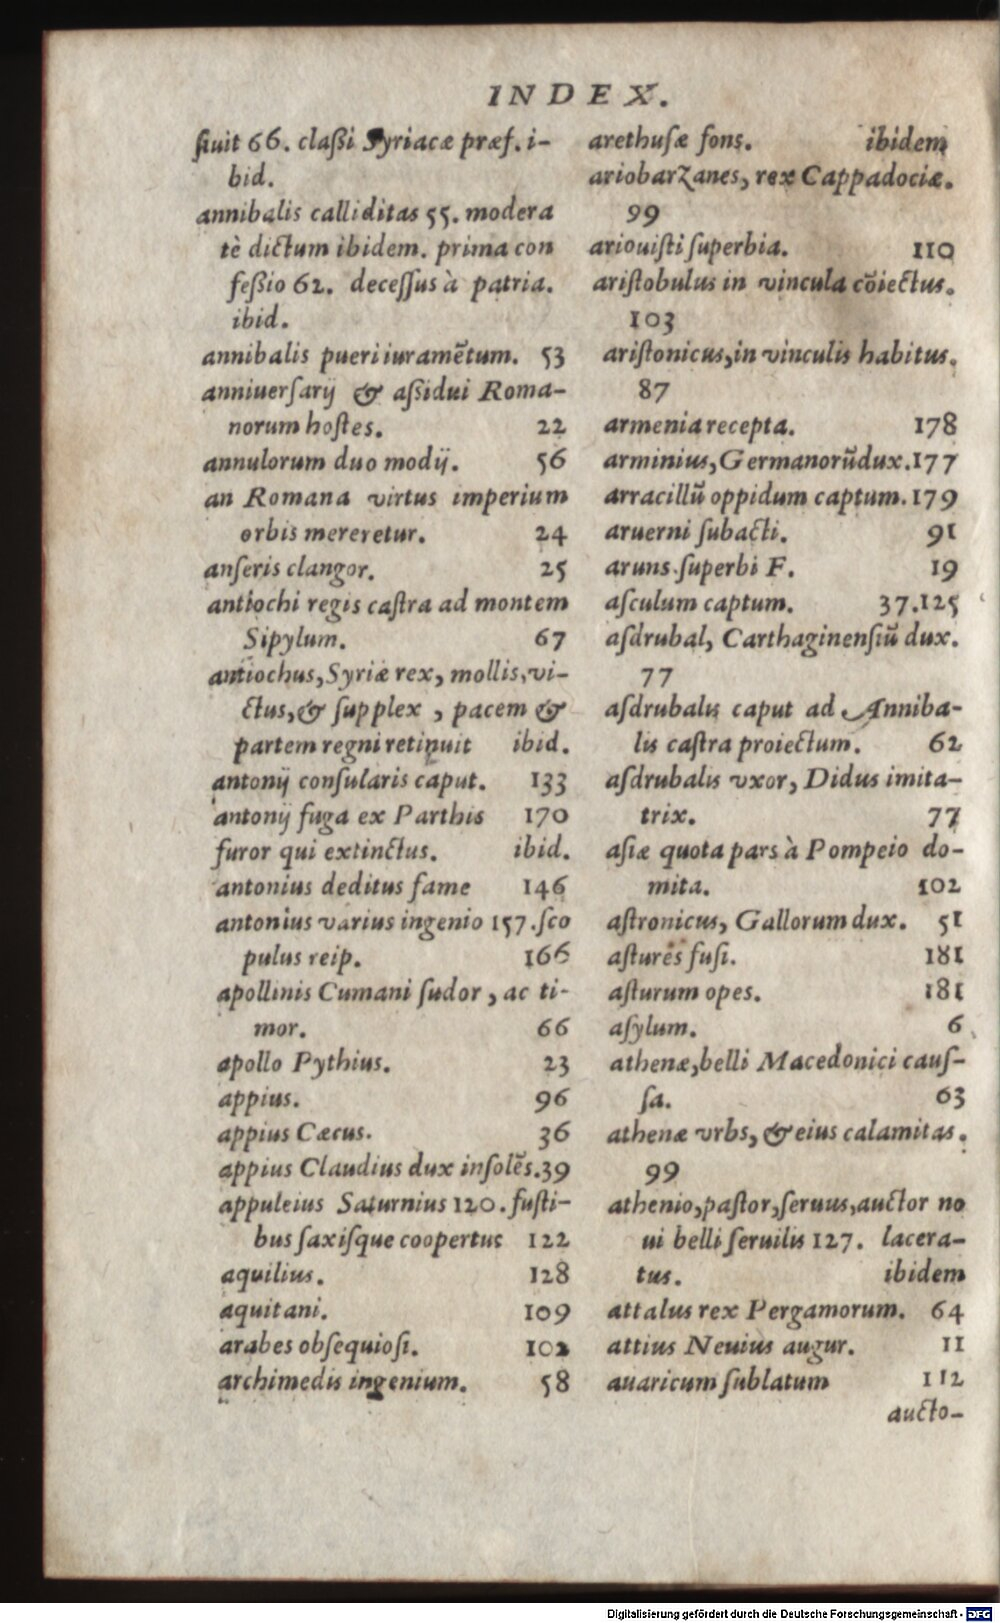 INDEX.
ſiuit 66. claßi Syriacæ præf. i-
bid.
annibalis calliditas 55. modera
tè dictum ibidem. prima con
feßio 62. deceſſus à patria.
ibid.
annibalis pueri iuramētum. 53
anniuerſarÿ & aßidui Roma-
norum hoſtes. 22
annulorum duo modÿ. 56
an Romana virtus imperium
orbis mereretur. 24
anſeris clangor. 25
antiochi regis caſtra ad montem
Sipylum. 67
antiochus, Syriæ rex, mollis, vi-
ctus, & ſupplex, pacem &
partem regni retinuit ibid.
antonÿ conſularis caput. 133
antonÿ fuga ex Parthis 170
furor qui extinctus. ibid.
antonius deditus fame 146
antonius varius ingenio 157. ſco
pulus reip. 166
apollinis Cumani ſudor, ac ti-
mor. 66
apollo Pythius. 23
appius. 96
appius Cæcus. 36
appius Claudius dux inſolēs. 39
appuleius Saturnius 120. fuſti-
bus ſaxiſque coopertus 122
aquilius. 128
aquitani. 109
arabes obſequioſi. 102
archimedis ingenium. 58
arethuſæ fons. ibidem
ariobarzanes, rex Cappadociæ.
99
ariouiſti ſuperbia. 110
ariſtobulus in vincula cōiectus.
103
ariſtonicus, in vinculis habitus.
87
armenia recepta. 178
arminius, Germanorū dux. 177
arracillū oppidum captum. 179
aruerni ſubacti. 91
aruns ſuperbi F. 19
aſculum captum. 37.125
aſdrubal, Carthaginenſiū dux.
77
aſdrubalis caput ad Anniba-
lis caſtra proiectum. 62
aſdrubalis vxor, Didus imita-
trix. 77
aſiæ quota pars à Pompeio do-
mita. 102
aſtronicus, Gallorum dux. 51
aſtures fuſi. 181
aſturum opes. 181
aſylum. 6
athenæ, belli Macedonici cauſ-
ſa. 63
athenæ vrbs, & eius calamitas.
99
athenio, paſtor, ſeruus, auctor no
ui belli ſeruilis 127. lacera-
tus. ibidem
attalus rex Pergamorum. 64
attius Neuius augur. 11
auaricum ſublatum 112
aucto-
Digitalisierung gefördert durch die Deutsche Forschungsgemeinschaft - DFG